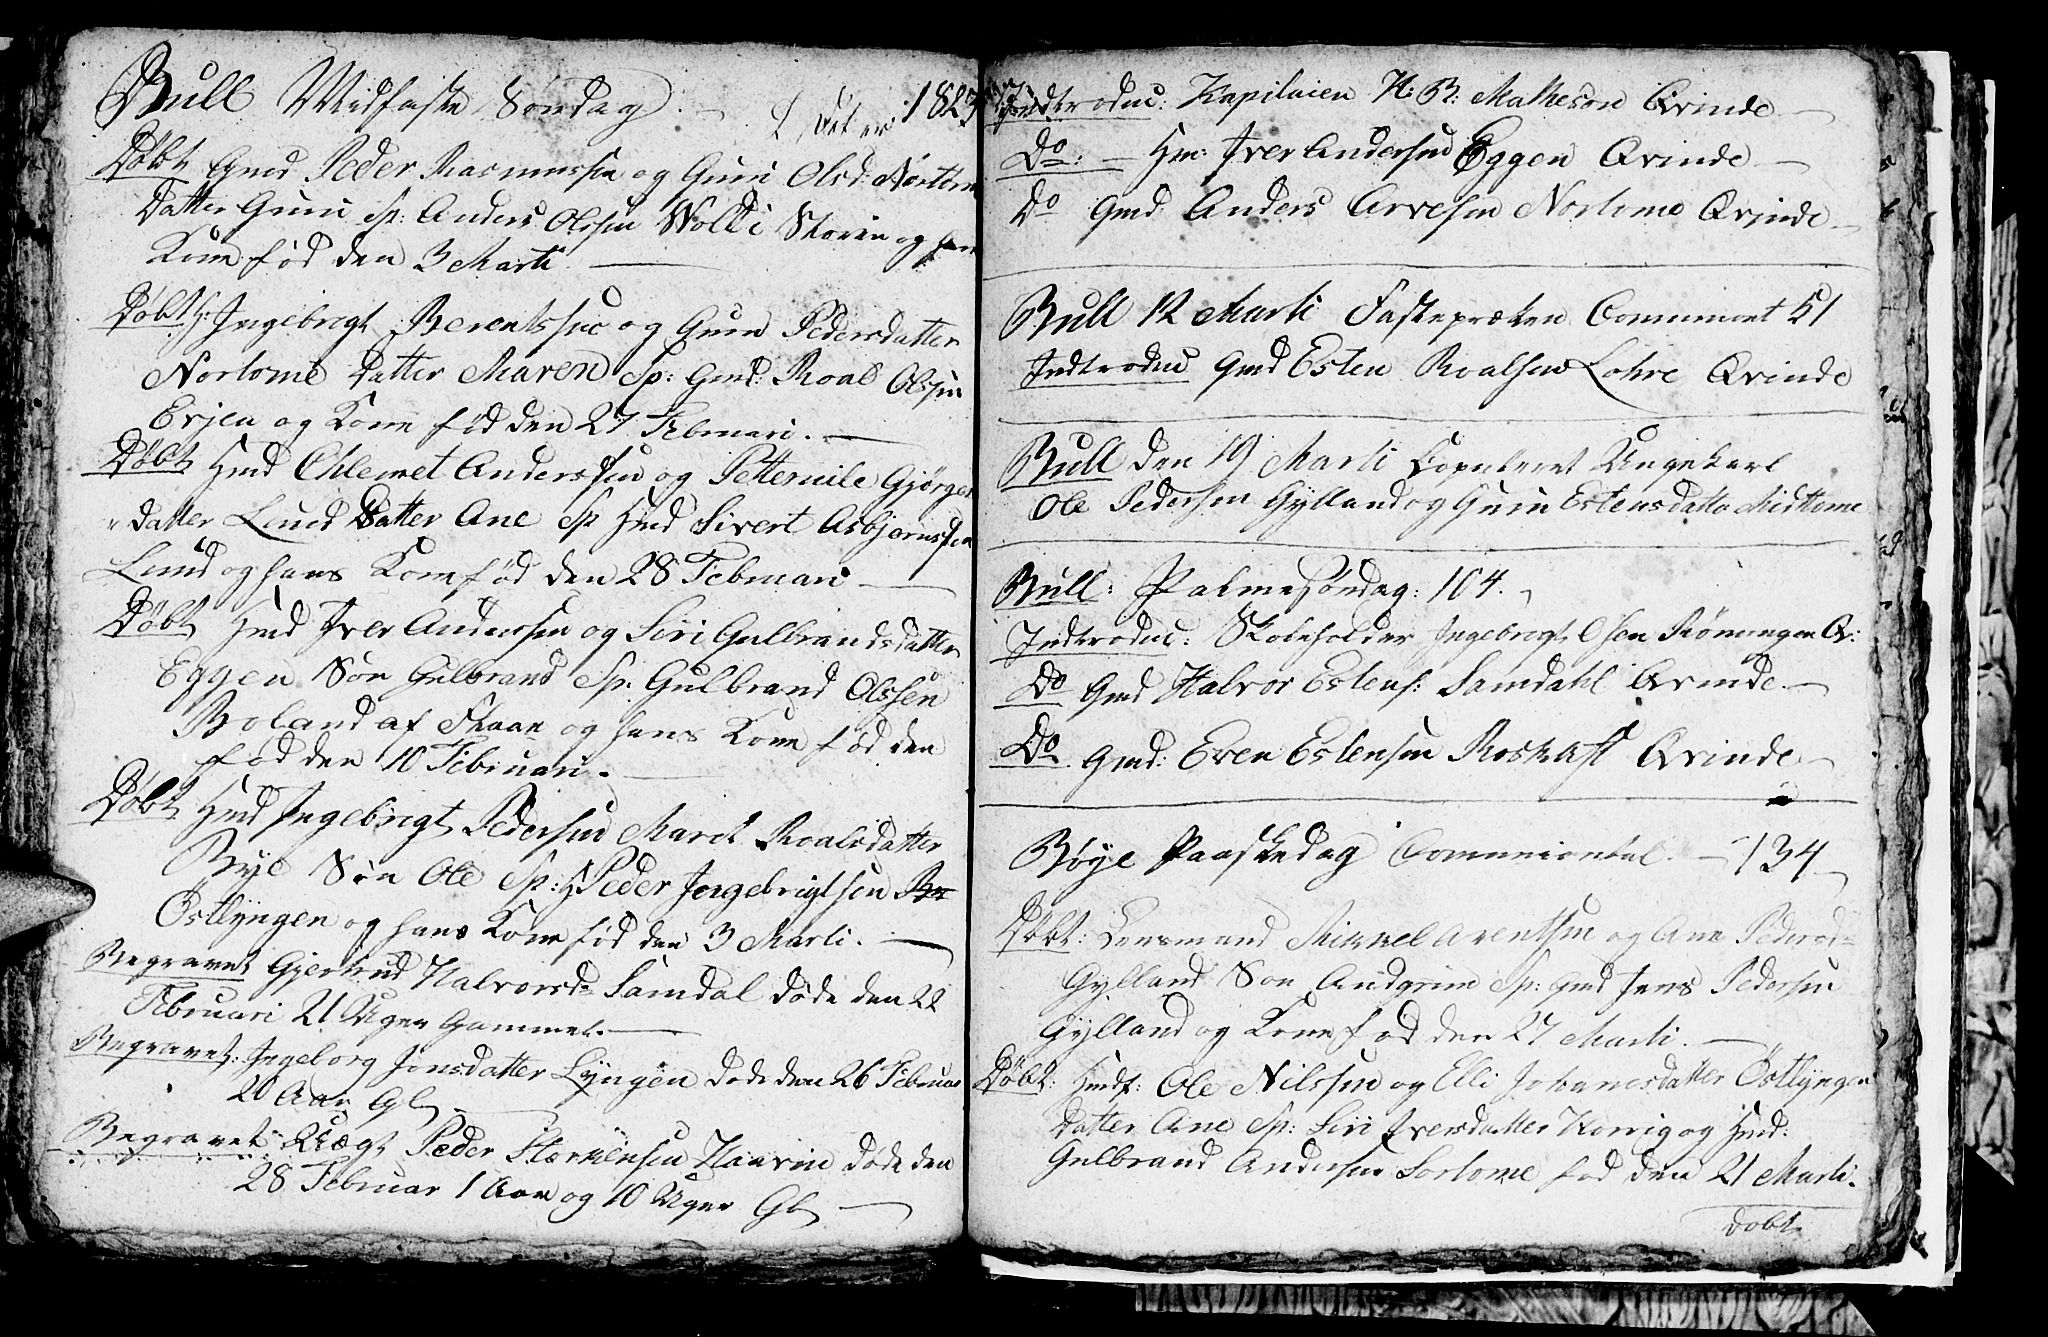 Bull Midfaste Søndag. 1823
Døbt Gmd Peder Rasmussen og Guru Olsd: Nortome
Datter Guru Sp: Anders Olssen Wold i Storen og hans
Kone fød den 3 Marti
Døbt H: Ingebrigt Berentssen og Guru Pedersdatter
Nortome Datter Maren Sp: Gmd: Roal Olssen
Evjen og Kone fød den 27 Februari.
Døbt Hmd Ehlemet Anderssen og Petternile Gjørges
datter Lund Datter Ane Sp Hmd Sivert Asbjørnssen
Lund og hans Kone fød den 28 Februari
Døbt Hmd Iver Andersen og Siri Gulbrandsdatter
Eggen Søn Gulbrand Sp: Gulbrand Olssen
Boland af Skaan og hans Kone fød den
fød den 10 Februari.
Døbt Hmd Ingebrigt Pedersen Marit Roalsdatter
Bye Søn Ole Sp: H Peder Ingebrigtsen
Østlyngen og hans Kone fød den 3 Marti.
Begravet Gjertrud Halvorsd: Samdal døde den 22
Februari 21 Uger Gammel.
Begravet: Ingeborg Jonsdatter Lyngen døde den 26 Februar
20 Aar Gl
Begravet Peder Størkersen Haavin døde den
28 Februar 1 Aar og 10 Uger Gl
Indtroduc: H: B: Matheson Qvinde
Do: Hm: Iver Andersen Eggen Qvinde
Do Gmd Anders Arvesen Nortome Qvinde
Bull 12 Marti Fastepræken Comunicet 51
Indtroduc Gmd Esten Roalsen Lohre Qvinde
Bull den 19 Marti Copuleret Ungekarl
Ole Pedersen Gylland og Guru Estensdatter Midttome
Bull: Palmesøndag: 104.
Indtroduc: Skoleholder Ingebrigt Olsen Rønningen Qv:
Do Gmd Halvor Estens: Samdahl Qvinde
Do Gmd: Even Estensen Roskaft Qvinde
Bøye Paaskedag Comunicntal. 134
Døbt: Lensmand Mikkel Arentsen og Ane Pedersd:
Gylland Søn Andgrim Sp: Gmd Jens Pedersen
Gylland og Kone fød den 27 Marti.
Døbt: Hmd: Ole Nilssen og Elli Johanesdatter Østlyngen
Datter Ane Sp: Siri Iversdatter Horrig og Hmd:
Gulbrand Andersen Sortome fød den 21 Marti.
Døbt